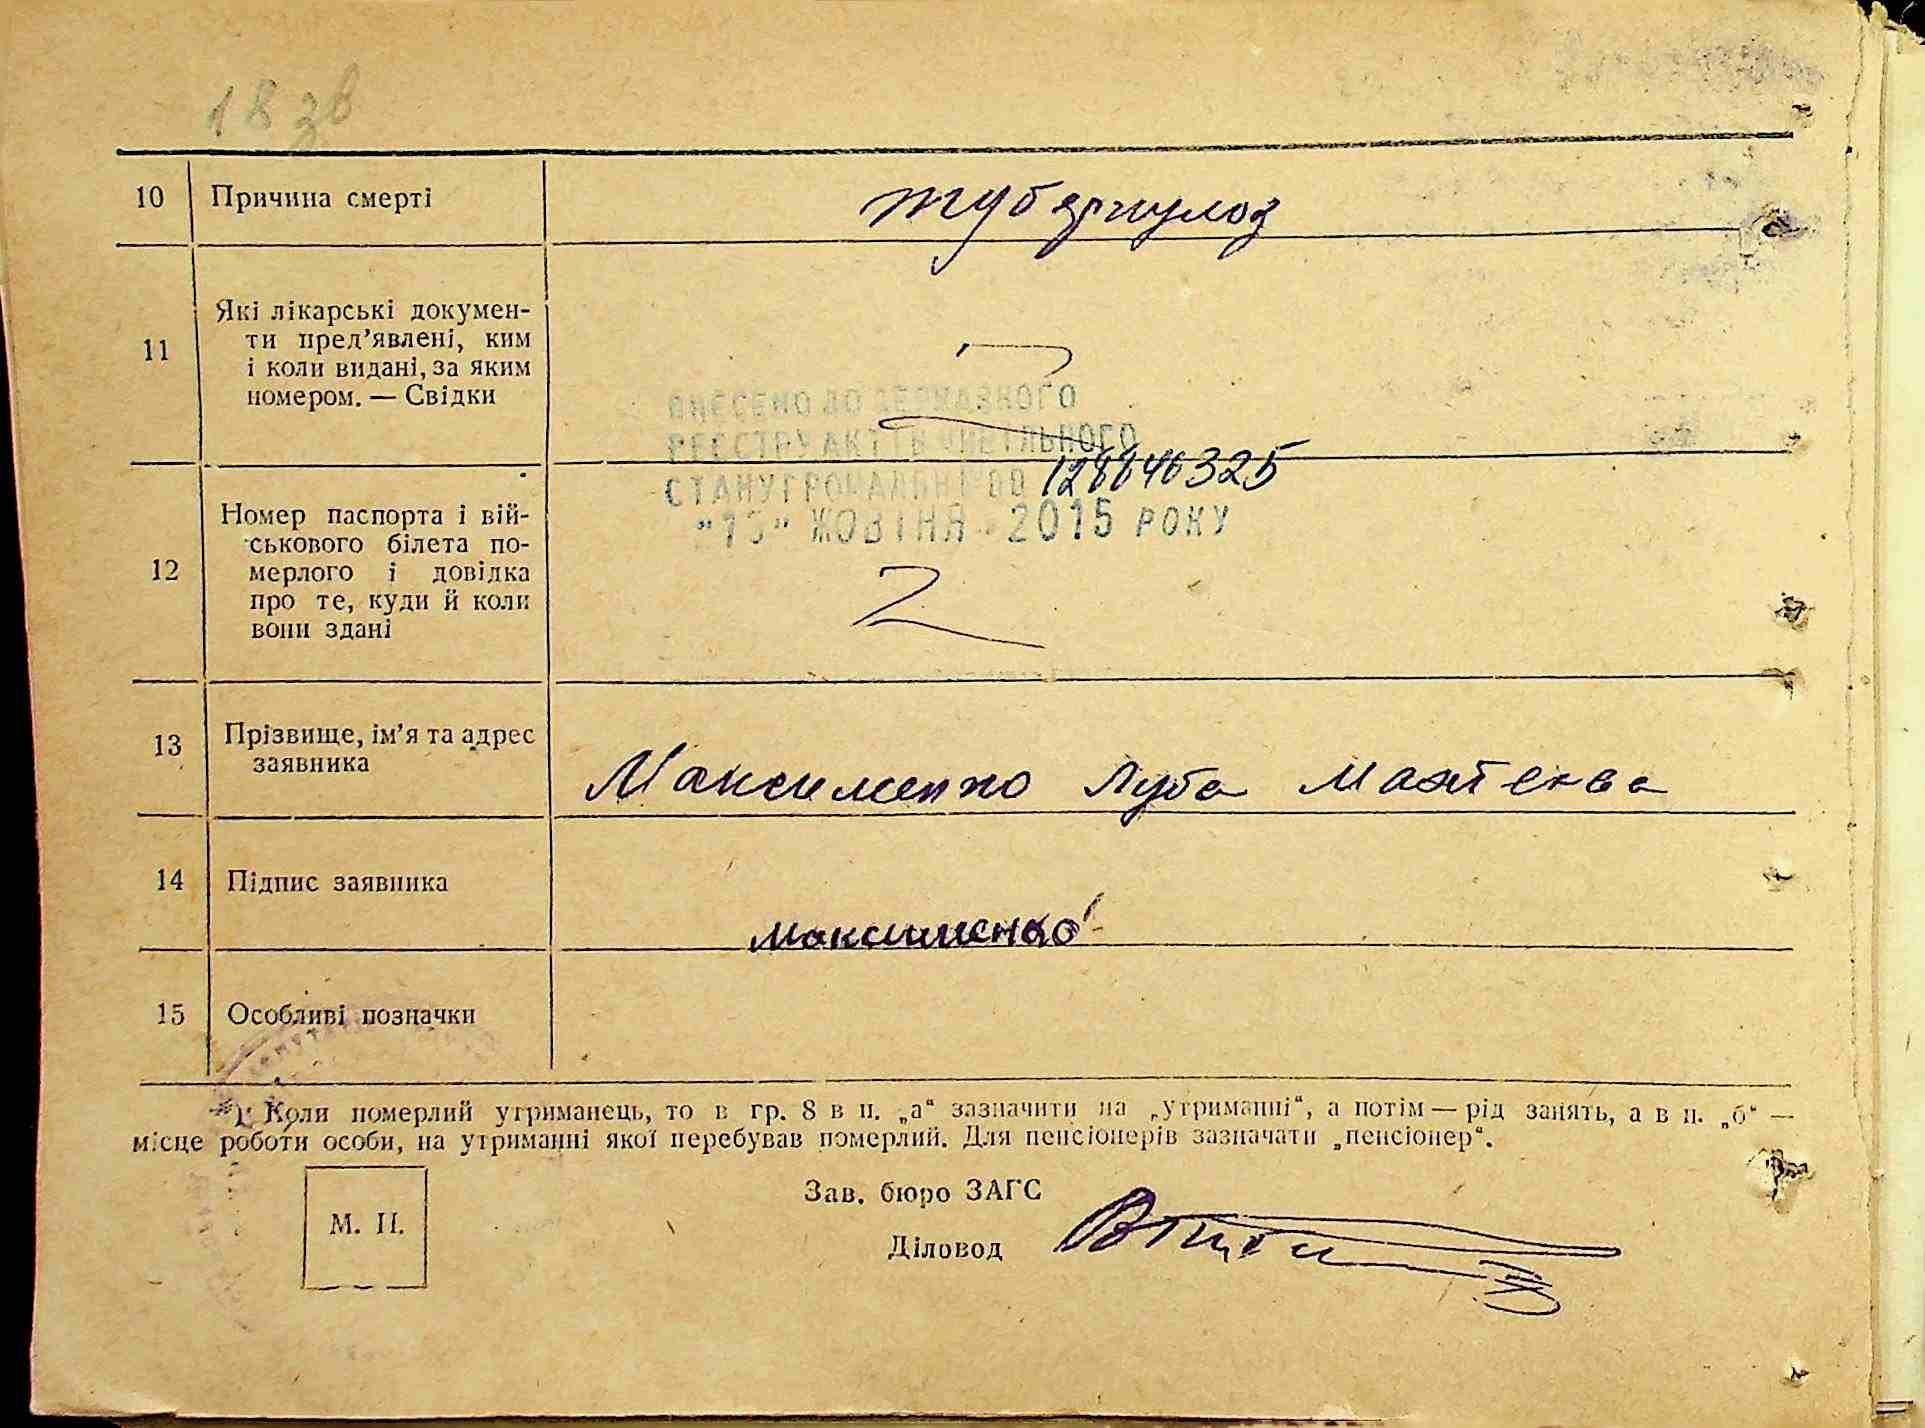 18 зв
10 Причина смерті туберкулоз
11 Які лікарські докумен-
ти пред’явлені, ким
і коли видані, за яким
номером. — Свідки
ВНЕСЕНО ДО ДЕРЖАВНОГО
РЕЄСТРУ АКТІВ ЦИВІЛЬНОГО
СТАНУ ГРОМАДЯН ЗА
"15" ЖОВТНЯ 2015 РОКУ
12 Номер паспорта і вій-
ськового білета по-
мерлого і довідка
про те, куди й коли
вони здані
13 Прізвище, ім’я та адрес
заявника
Максименко Люба
14 Підпис заявника
Максименко
15 Особливі позначки
*) Коли померлий утриманець, то в гр. 8 в п. „а“ зазначити на „утриманні“, а потім — рід занять, а в п. „б“ —
місце роботи особи, на утриманні якої перебував померлий. Для пенсіонерів зазначати „пенсіонер“.
Зав. бюро ЗАГС
М. П.
Діловод